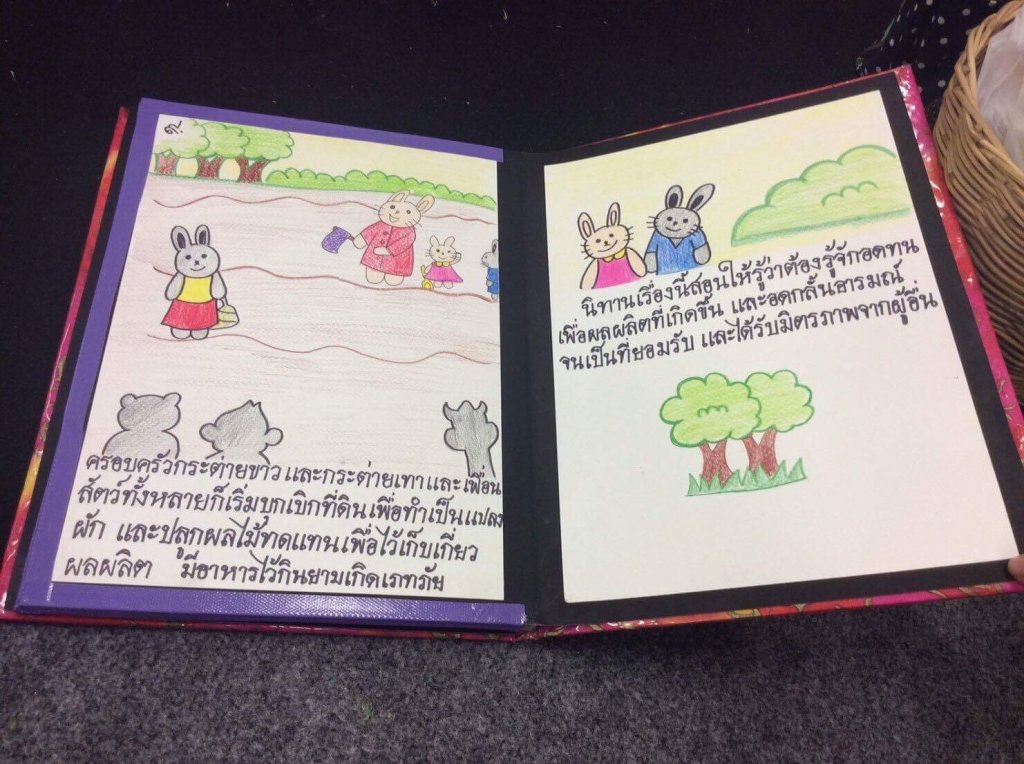 ๙.
ครอบครัวกระต่ายขาว และกระต่ายเทา และเพื่อน
สัตว์ทั้งหลายก็เริ่มบุกเบิกที่ดิน เพื่อทำเป็นแปลง
ผัก และปลูกผลไม้ทดแทน เพื่อไว้เก็บเกี่ยว
ผลผลิต มีอาหารไว้กินยามเกิดเภทภัย
นิทานเรื่องนี้สอนให้รู้ว่าต้องรู้จักอดทน
เพื่อผลผลิตที่เกิดขึ้น และอดกลั้นอารมณ์
จนเป็นที่ยอมรับ และได้รับมิตรภาพจากผู้อื่น